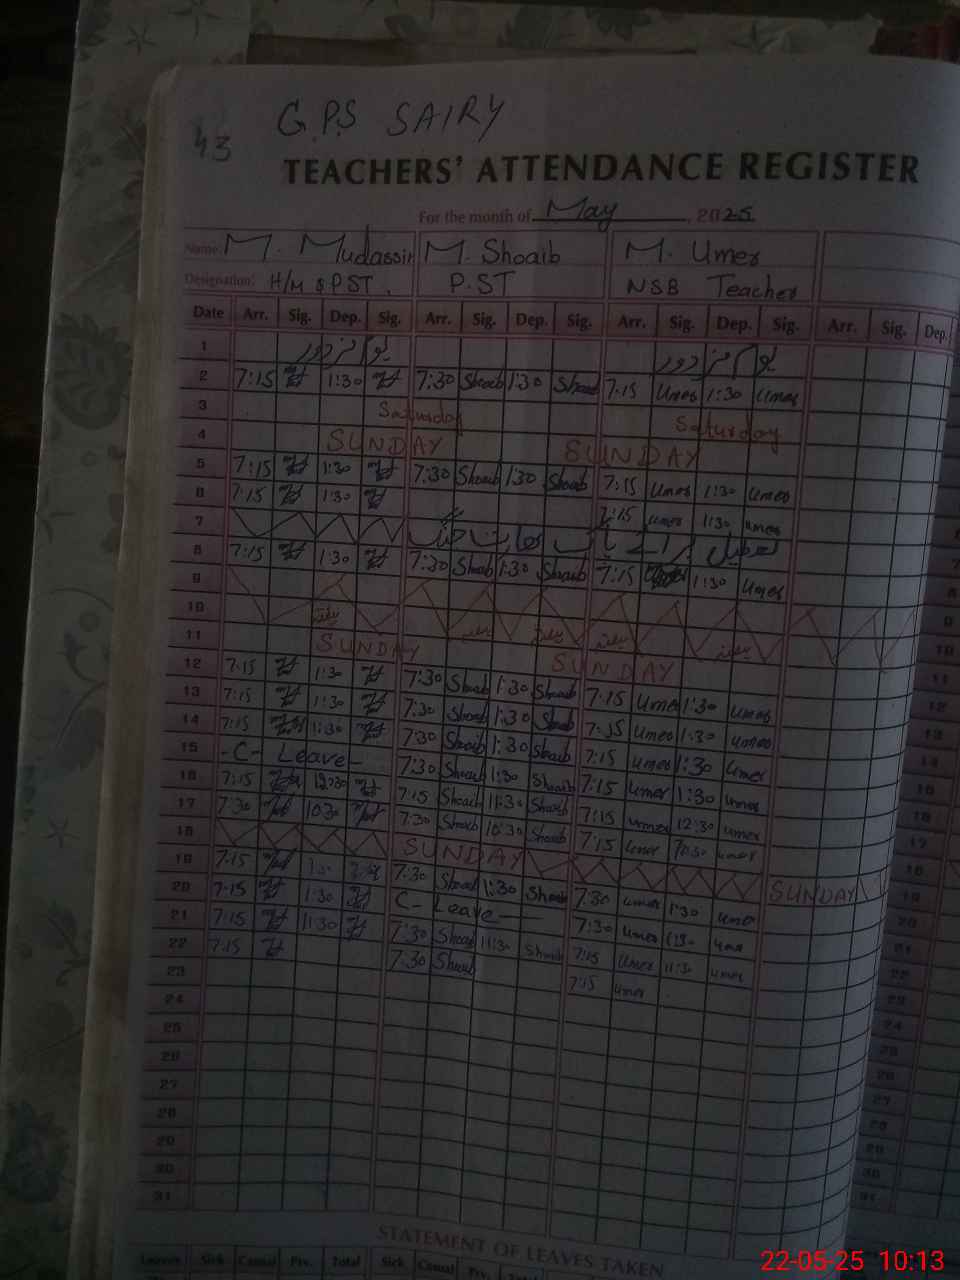 43
G.P.S SAIRY
TEACHERS' ATTENDANCE REGISTER
For the month of May, 2025
Name: M. Mudassir M. Shoaib M. Umer
Designation: H/M & PST. P.ST NSB Teacher
Date Arr. Sig. Dep. Sig. Arr. Sig. Dep. Sig. Arr. Sig. Dep. Sig. Arr. Sig. Dep.
1 یوم مزدور یوم مزدور
2 7:15 1:30 7:30 Shoaib 1:30 Shoaib 7:15 Umer 1:30 Umer
3 Saturday Saturday
4 SUNDAY SUNDAY
5 7:15 1:30 7:30 Shoaib 1:30 Shoaib 7:15 Umer 1:30 Umer
6 7:15 1:30 7:15 Umer 1:30 Umer
7
8 7:15 1:30 7:30 Shoaib 1:30 Shoaib 7:15 1:30 Umer
9
10
11 SUNDAY SUNDAY
12 7:15 1:30 7:30 Shoaib 1:30 Shoaib 7:15 Umer 1:30 Umer
13 7:15 1:30 7:30 Shoaib 1:30 Shoaib 7:15 Umer 1:30 Umer
14 7:15 1:30 7:30 Shoaib 1:30 Shoaib 7:15 Umer 1:30 Umer
15 -C- Leave- 7:30 Shoaib 1:30 Shoaib 7:15 Umer 1:30 Umer
16 7:15 12:30 7:15 Shoaib 11:30 Shoaib 7:15 Umer 12:30 Umer
17 7:30 10:30 7:30 Shoaib 10:30 Shoaib 7:15 Umer 10:30 Umer
18 SUNDAY SUNDAY
19 7:15 1:30 7:30 Shoaib 1:30 Shoaib 7:30 Umer 1:30 Umer
20 7:15 1:30 C- Leave- 7:30 Umer 1:30 Umer
21 7:15 11:30 7:30 Shoaib 11:30 Shoaib 7:15 Umer 11:30 Umer
22 7:15 7:30 Shoaib 7:15 Umer
23
24
25
26
27
28
29
30
31
STATEMENT OF LEAVES TAKEN
Leaves Sick Casual Prv. Total Sick Casual Prv. Total
22-05-25 10:13